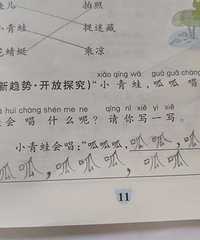 鱼儿 拍照
小青蛙 捉迷藏
花蜻蜓 乘凉
新趋势·开放探究)“
xiǎo qīng wā guā guā chàng
小 青 蛙，呱 呱 唱
huì chàng shén me ne qǐng nǐ xiě yi xiě
会 唱 什 么 呢？ 请 你 写 一 写。
小青蛙会唱：“呱呱呱，呱 呱，呱
呱 呱，呱 呱，呱 呱
11